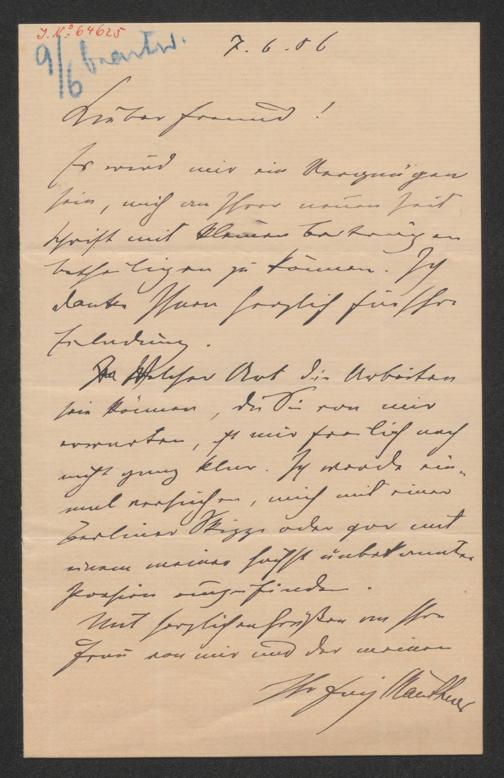 J. N. 64625
9/6 beantw.
7. 6. 06
Lieber Freund!
Es wird mir ein Vergnügen
sein, mich an Ihrer neuen Zeit
schrift mit kleinen Beiträgen
betheiligen zu können. Ich
danke Ihnen herzlich für Ihre
Einladung.
Welcher Art die Arbeiten
sein können, die Sie von mir
erwarten, ist mir freilich noch
nicht ganz klar. Ich werde ein-
mal versuchen, mich mit einer
Berliner Skizze oder gar mit
einem meiner höchst unbekannten
Poesien einzufinden.
Mit herzlichen Grüßen an Ihre
Frau von mir und der meinen
Ihr Fritz Mauthner